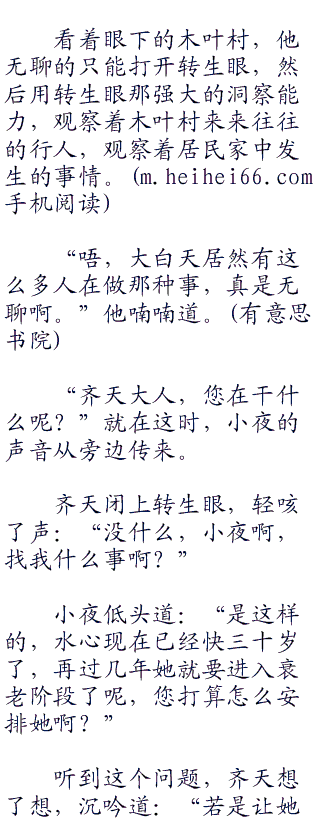 看着眼下的木叶村，他
无聊的只能打开转生眼，然
后用转生眼那强大的洞察能
力，观察着木叶村来来往往
的行人，观察着居民家中发
生的事情。(m.heihei66.com
手机阅读)
“唔，大白天居然有这
么多人在做那种事，真是无
聊啊。”他喃喃道。(有意思
书院)
“齐天大人，您在干什
么呢？”就在这时，小夜的
声音从旁边传来。
齐天闭上转生眼，轻咳
了声：“没什么，小夜啊，
找我什么事啊？”
小夜低头道：“是这样
的，水心现在已经快三十岁
了，再过几年她就要进入衰
老阶段了呢，您打算怎么安
排她啊？”
听到这个问题，齐天想
了想，沉吟道：“若是让她